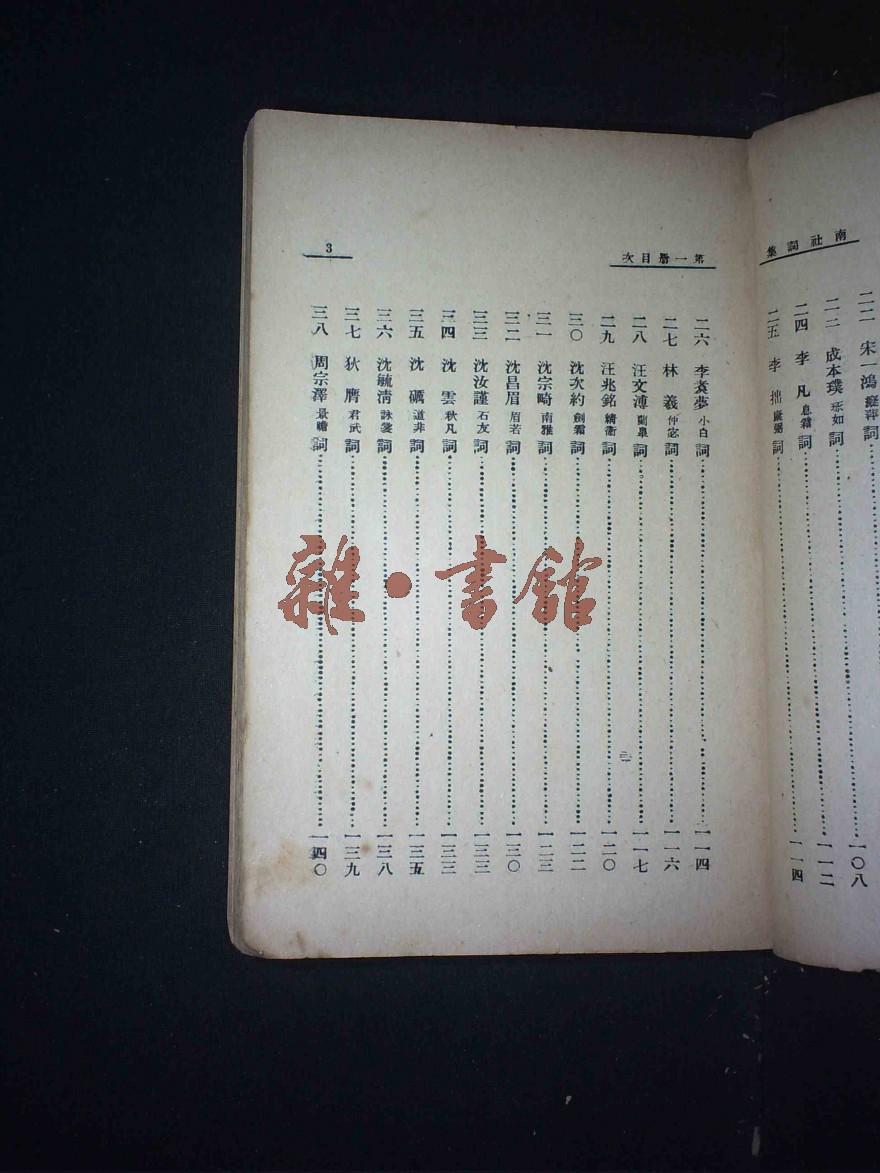 南社詞集
二二 宋一鴻 癡萍 詞 一〇八
二三 成本璞 琢如 詞 一一二
二四 李凡 息霜 詞
二五 李拙 康弼 詞 一一四
第一册目次
3
二六 李煮夢 小白 詞 一一四
二七 林羲 仲宓 詞 一一六
二八 汪文溥 蘭皋 詞 一一七
二九 汪兆銘 精衛 詞 一二〇
三〇 沈次約 劍霜 詞 一二二
三一 沈宗畸 南雅 詞 一二三
三二 沈昌眉 眉若 詞 一三〇
三三 沈汝謹 石友 詞 一三三
三四 沈雲 秋凡 詞 一三三
三五 沈礪 道非 詞 一三五
三六 沈毓清 詠裳 詞 一三八
三七 狄膺 君武 詞 一三九
三八 周宗澤 景瞻 詞 一四〇
二
雜·書館